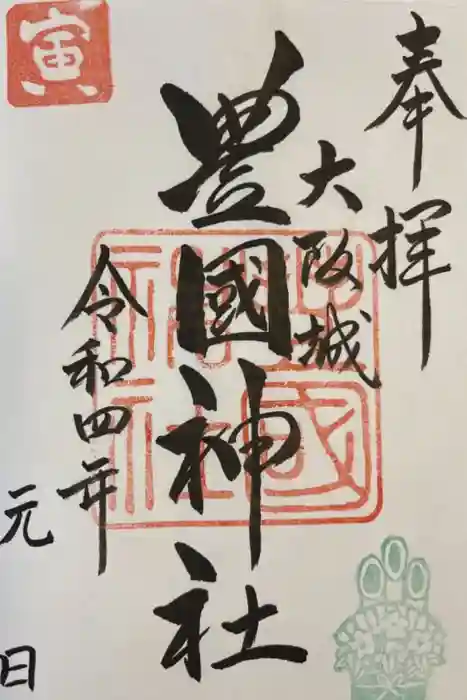 奉拝
大阪城
豊國神社
令和四年
元日
寅